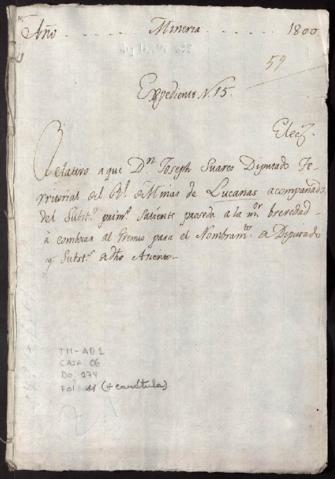 Año . . . . . Mineria . . . . . 1800
59
Expediente N. 15.
Elecc.
Relativo a que Dn. Joseph Suares Diputado Te-
rritorial del Rl. de Minas de Lucanas acompañado
del Substo. prim. Saliente proceda a la mor. brevedad
à combocar al Gremio para el Nombramto. de Diputado
y Substo. de dho Asiento.
TM-AD1
CAJA 06
DO. 274
FOL. 11 (+ carátula)